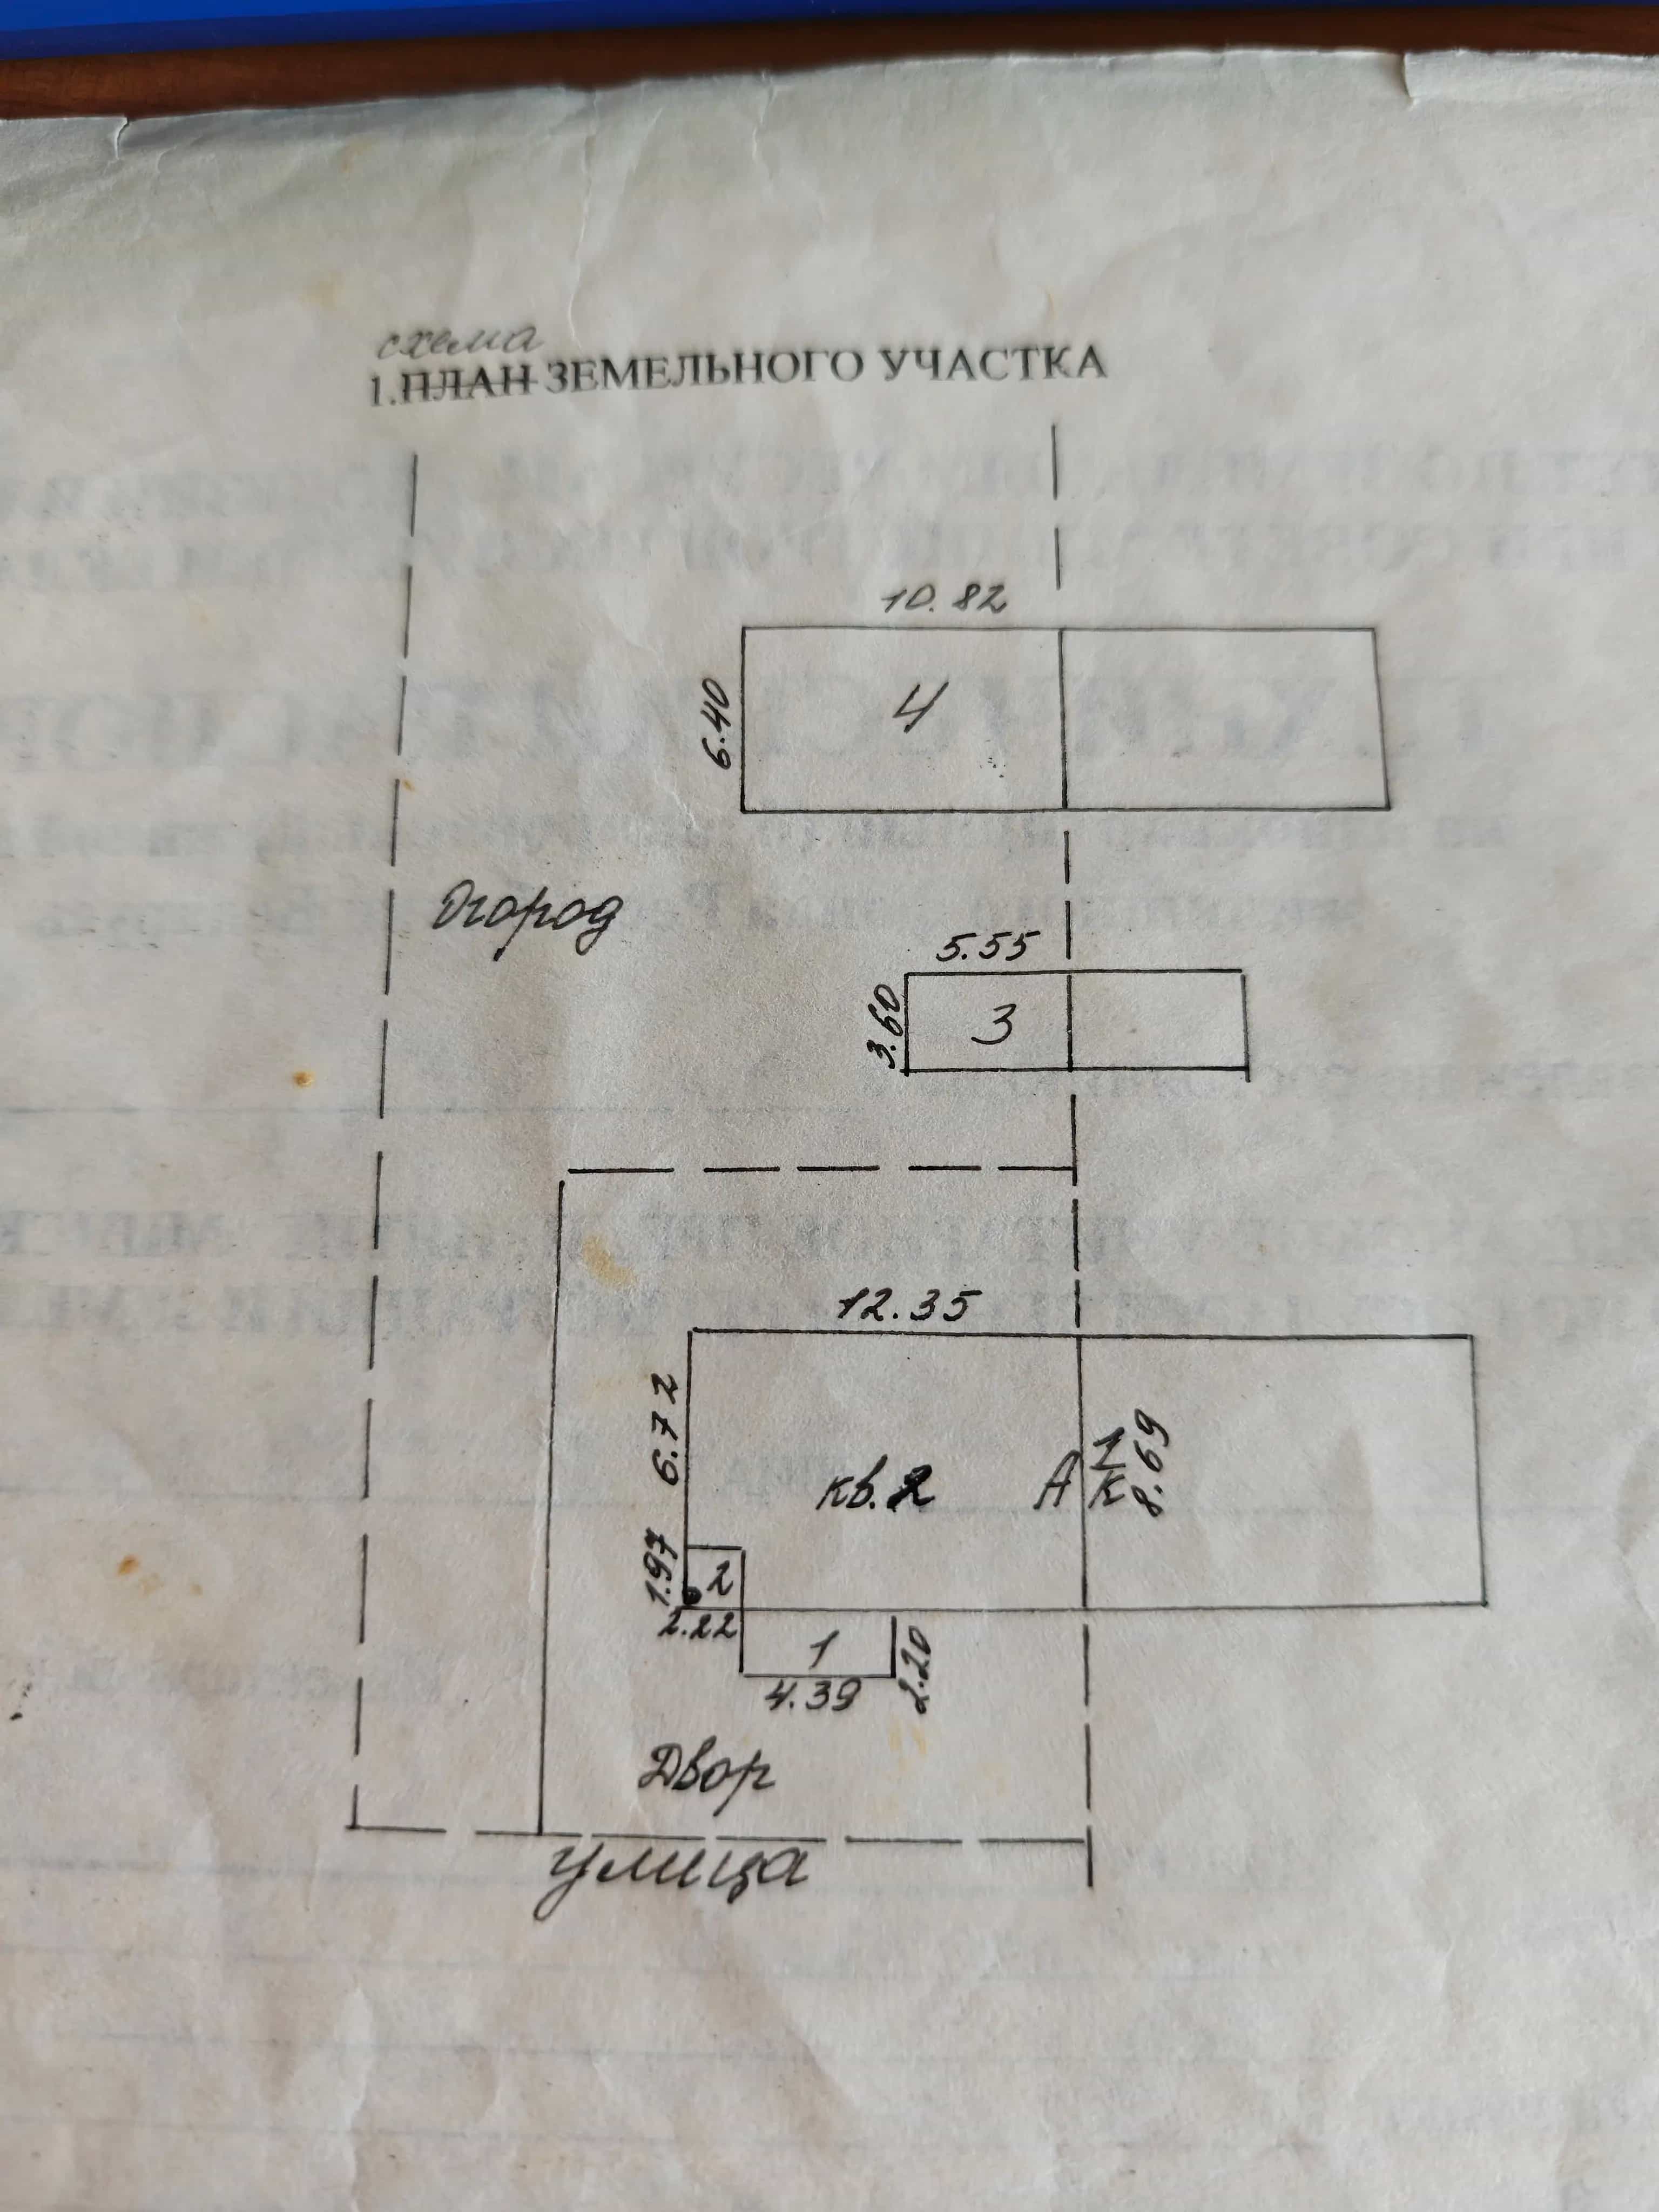 схема
1.ПЛАН ЗЕМЕЛЬНОГО УЧАСТКА
10.82
6.40
4
Огород
5.55
3.60
3
12.35
6.72
кв.2
А
1
К
8.69
1.97
2
2.22
1
2.20
4.39
Двор
улица